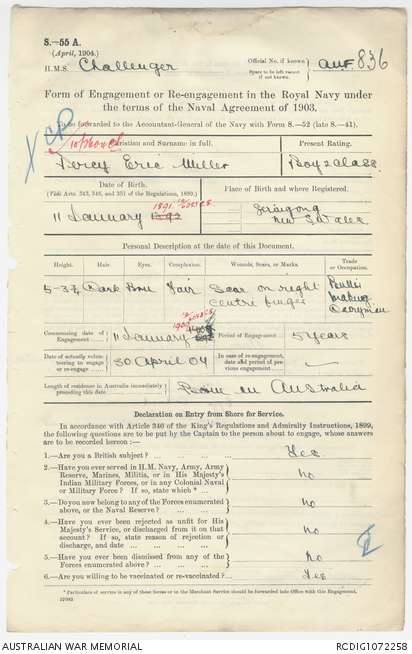 S.—55 A.
(April, 1904.)
H.M.S. Challenger
Official No. if known.
Space to be left vacant if not known.
AUF 836
Form of Engagement or Re-engagement in the Royal Navy under
the terms of the Naval Agreement of 1903.
To be forwarded to the Accountant-General of the Navy with Form S.—52 (late S.—41).
Christian and Surname in full.
Present Rating.
Percy Eric Miller
Boy 2 class
Date of Birth.
(Vide Arts. 343, 346, and 351 of the Regulations, 1899.)
Place of Birth and where Registered.
11 January 1892
1891
Geringong
New So Wales
Personal Description at the date of this Document.
Height. Hair Eyes. Complexion. Wounds, Scars, or Marks. Trade or Occupation.
Dark
Fair
Scar on right
centre finger
Dairyman
Commencing date of Engagement
11 January
1909
Period of Engagement
5 years
Date of actually volunteering to engage or re-engage
30 April 04
In case of re-engagement, date and period of previous engagement
Length of residence in Australia immediately preceding this date
Born in Australia
Declaration on Entry from Shore for Service.
In accordance with Article 346 of the King's Regulations and Admiralty Instructions, 1899,
the following questions are to be put by the Captain to the person about to engage, whose answers
are to be recorded hereon:—
1.—Are you a British subject? ... Yes
2.—Have you ever served in H.M. Navy, Army, Army
Reserve, Marines, Militia, or in His Majesty's
Indian Military Forces, or in any Colonial Naval
or Military Force? If so, state which * ...
No
3.—Do you now belong to any of the Forces enumerated
above, or the Naval Reserve? ...
No
4.—Have you ever been rejected as unfit for His
Majesty's Service, or discharged from it on that
account? If so, state reason of rejection or
discharge, and date ...
No
5.—Have you ever been dismissed from any of the
Forces enumerated above? ...
No
6.—Are you willing to be vaccinated or re-vaccinated? ...
Yes
* Particulars of service in any of these forces or in the Merchant Service should be forwarded into Office with this Engagement.
AUSTRALIAN WAR MEMORIAL
RCDIG1072258